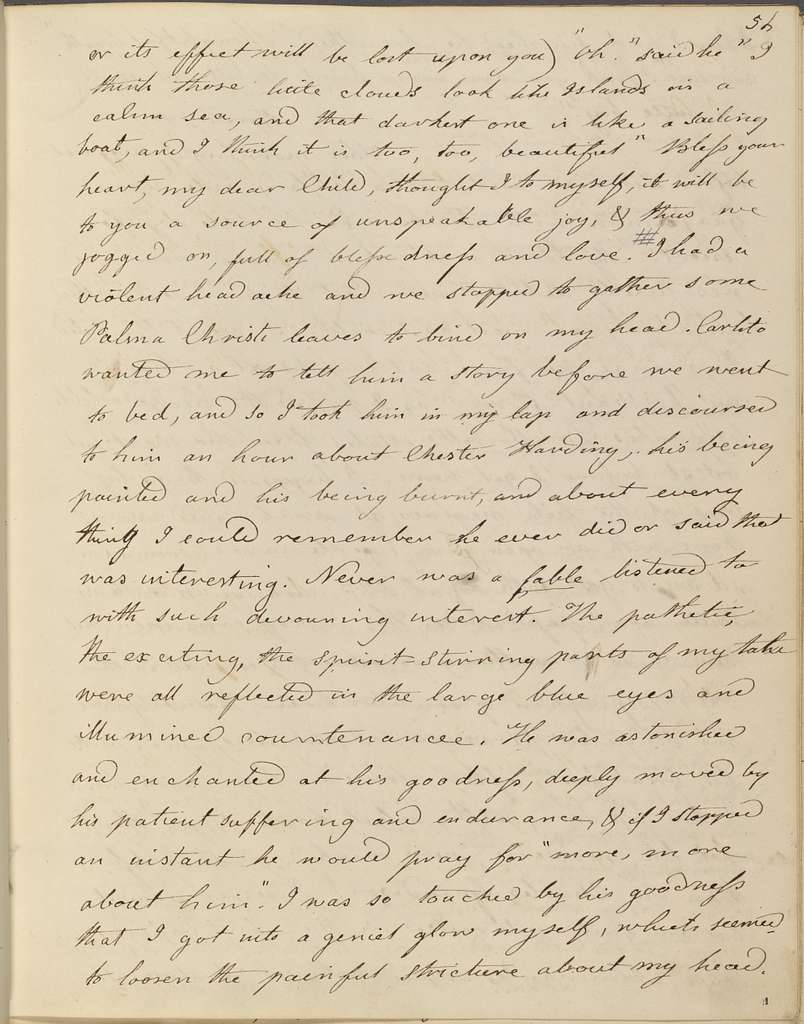 56
or its effect will be lost upon you) "Oh." said he "I
think those little clouds look like Islands in a
calm sea, and that darkest one is like a sailing
boat, and I think it is too, too, beautiful" Bless your
heart, my dear Child, thought I to myself, it will be
to you a source of unspeakable joy, & thus we
jogged on, full of blessedness and love. I had a
violent head ache and we stopped to gather some
Palma Christi leaves to bind on my head. Carlito
wanted me to tell him a story before we went
to bed, and so I took him in my lap and discoursed
to him an hour about Chester Harding, his being
painted and his being burnt, and about every
thing I could remember he ever did or said that
was interesting. Never was a fable listened to
with such devouring interest. The pathetic,
the exciting, the spirit-stirring parts of my tale
were all reflected in the large blue eyes and
illumined countenance. He was astonished
and enchanted at his goodness, deeply moved by
his patient suffering and endurance, & if I stopped
an instant he would pray for "more, more
about him". I was so touched by his goodness
that I got into a genial glow myself, which seemed
to loosen the painful stricture about my head.